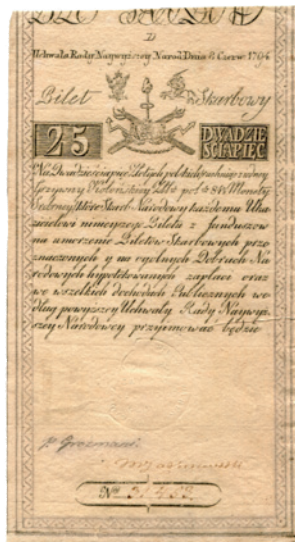 D
Uchwała Rady Naywyższey Narod: Dnia 8. Czerw. 1794
Bilet Skarbowy
25 DWADZIE
ŚCIAPIĘĆ
Na Dwadzieściapięć Złotych polskich
Grzywny Kolońskiey Monety
Srebrney, które Skarb Narodowy każdemu Oka-
zicielowi ninieyszego Biletu z funduszow
na umorzenie Biletów Skarbowych prze
znaczonych y na ogólnych Dobrach Na
rodowych hypotekowanych zapłaci oraz
we wszelkich dochodach Publicznych we
dług powyższey Uchwały Rady Naywyż
szey Narodowey przyimować będzie
Nro